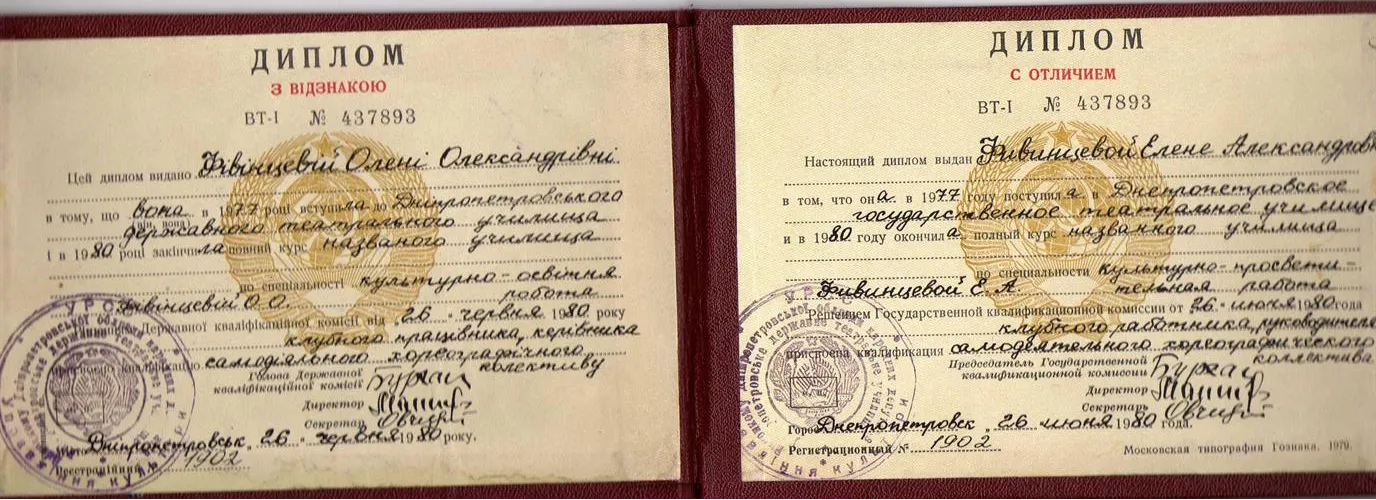 ДИПЛОМ
З ВІДЗНАКОЮ
ВТ-І № 437893
Цей диплом видано Фівінцевій Олені Олександрівні
в тому, що вона в 1977 році вступила до Дніпропетровського
державного театрального училища
і в 1980 році закінчила повний курс названого училища
по спеціальності культурно-освітня
робота
Фівінцевій О.О.
Державної кваліфікаційної комісії від "26" червня 1980 року
клубного працівника, керівника
кваліфікацію самодіяльного хореографічного
колективу
Голова Державної
кваліфікаційної комісії
Директор
Секретар
Дніпропетровськ 26 червня 1980 року.
Реєстраційний № 1902
ДИПЛОМ
С ОТЛИЧИЕМ
ВТ-І № 437893
Настоящий диплом выдан Фивинцевой Елене Александровн
в том, что она в 1977 году поступила в Днепропетровское
государственное театральное училище
и в 1980 году окончила полный курс названного училища
по специальности культурно-просвети-
тельная работа
Фивинцевой Е. А
Решением Государственной квалификационной комиссии от "26" июня 1980 года
клубного работника, руководителя
присвоена квалификация самодеятельного хореографического
коллектива
Председатель Государственной
квалификационной комиссии
Директор
Секретарь
Город Днепропетровск 26 июня 1980 года.
Регистрационный № 1902
Московская типография Гознака. 1979.